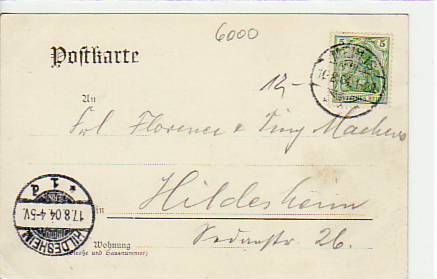 6000
Postkarte
5 5
WEIMAR
12,-
An
Frl. Florence &
in Hildesheim
HILDESHEIM
17.8.04 4-5V.
* 1 d
Wohnung
(Straße und Hausnummer)
Sedanstr 26.